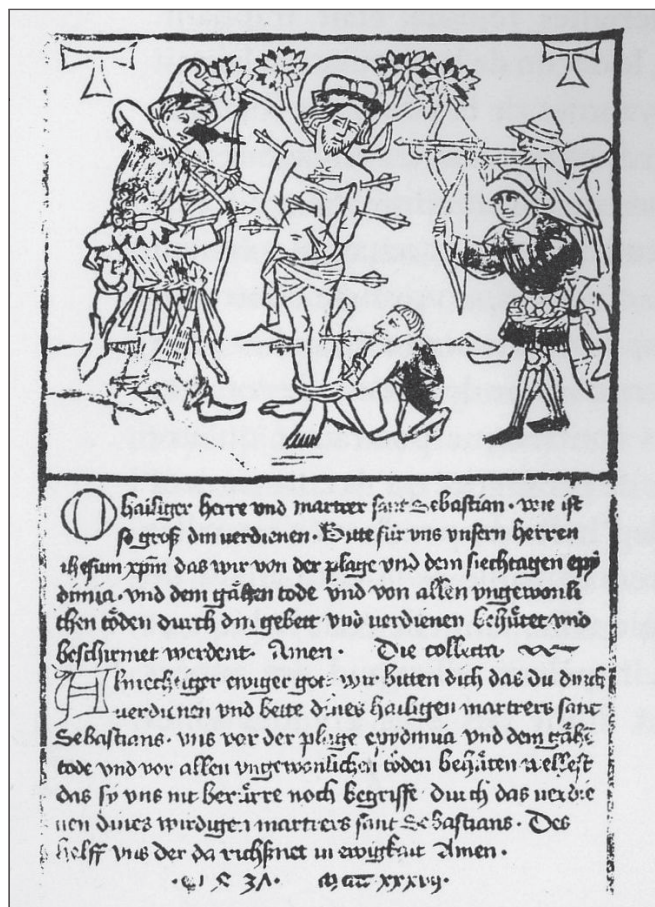 O hailiger herre und martrer sant Sebastian · wie ist
so groß din verdienen · Bitte für vns vnsern herren
ihesum xpm das wir von der plage vnd dem siechtagen epy
dimia · vnd dem gähen tode vnd von allen vngewonli
chen töden durch din gebett vnd verdienen behütet vnd
beschirmet werdent · Amen · Die collecta
Almechtiger ewiger got · wir bitten dich das du durch
verdienen vnd bette dines hailigen martrers sant
Sebastians · vns vor der plage epydimia vnd dem gähen
tode vnd vor allen vngewonlichen töden behüten wellest
das sy vns nit berürre noch begriffe durch das verdie
nen dines wirdigen martrers sant Sebastians · Des
helff vns der da richßnet in ewigkait Amen ·
xxxvij ·